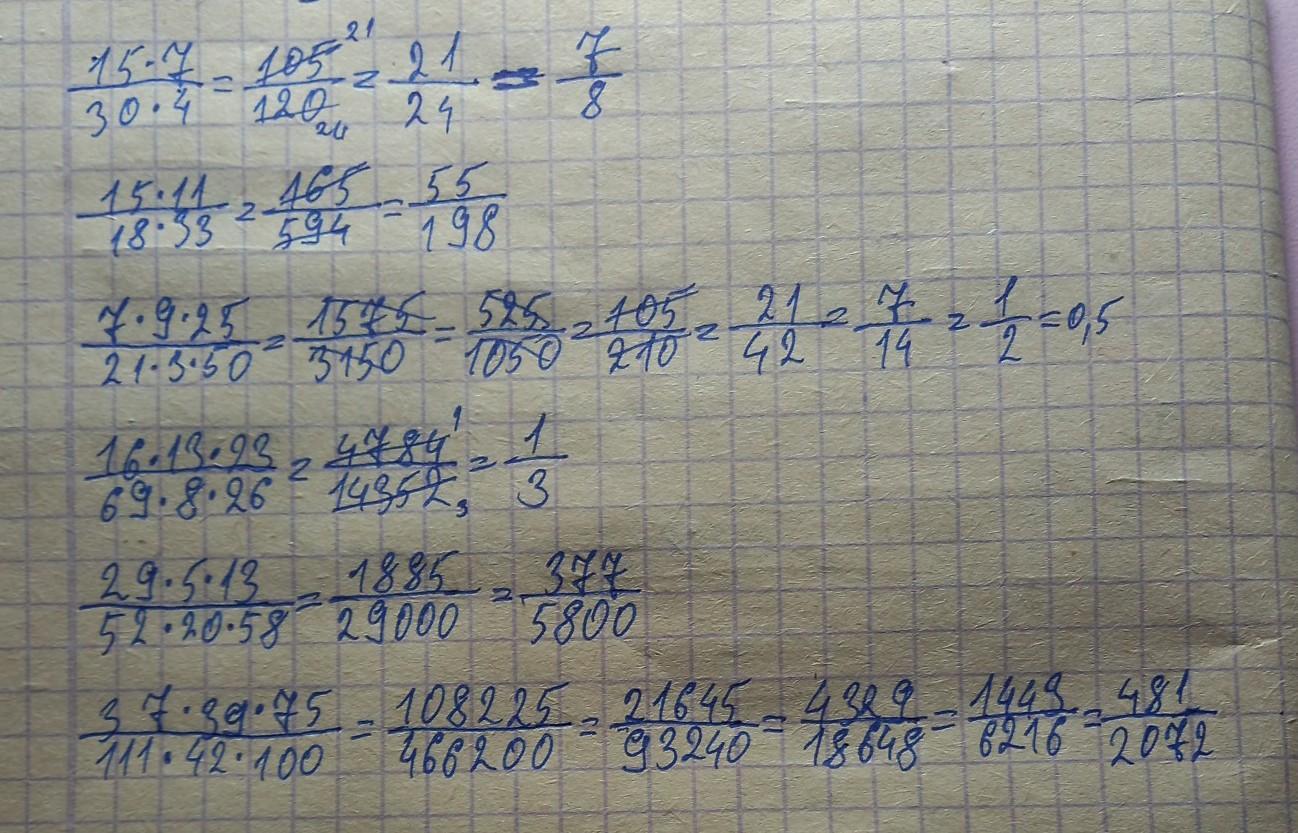 15·7/30·4 = 105/120 21 24 = 21/24 = 7/8
15·11/18·33 = 165/594 = 55/198
7·9·25/21·3·50 = 1575/3150 = 525/1050 = 105/210 = 21/42 = 7/14 = 1/2 = 0,5
16·13·23/69·8·26 = 4784/14352 1 3 = 1/3
29·5·13/52·20·58 = 1885/29000 = 377/5800
37·39·75/111·42·100 = 108225/466200 = 21645/93240 = 4329/18648 = 1443/6216 = 481/2072